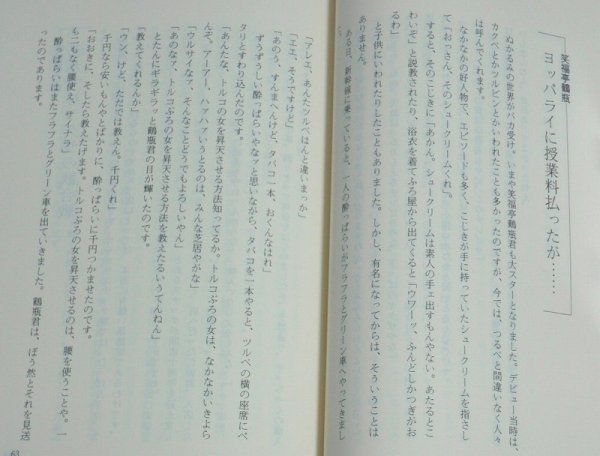 笑福亭鶴瓶
ヨッパライに授業料払ったが……
ぬかるみの世界がバカ受け。いまや笑福亭鶴瓶君も大スターとなりました。デビュー当時は、
カクベとかツルビンとかいわれたことも多かったのですが、今では、つるべと間違いなく人々
は呼んでくれます。
なかなかの好人物で、エピソードも多く、こじきが手に持っていたシュークリームを指さし
て「おっさん、そのシュークリームくれ」。
すると、そのこじきに「あかん。シュークリームは素人の手ェ出すもんやない。あたるとこ
わいぞ」と説教されたり、浴衣を着てふろ屋から出てくると「ウワーッ、ふんどしかつぎがお
るわ」
と子供にいわれたりしたこともありました。しかし、有名になってからは、そういうことは
ありません。
ある日、新幹線に乗っていると、一人の酔っぱらいがフラフラとグリーン車へやってきまし
「アレェ、あんたツルベはんと違いまっか」
「エエ、そうですけど」
「あのう、すんまへんけど、タバコ一本、おくんなはれ」
ずうずうしい酔っぱらいやなァと思いながら、タバコを一本やると、ツルベの横の座席にペ
タリとすわり込んだのです。
「あんたな、トルコぶろの女を昇天させる方法知ってるか。トルコぶろの女は、なかなかいきよら
んぞ、アーアー、ハァハァいうとるのは、みんな芝居やがな」
「ウルサイなァ、そんなことどうでもよろしいやん」
「あのなァ、トルコぶろの女を昇天させる方法を教えたるいうてんねん」
とたんにギラギラッと鶴瓶君の目が輝いたのです。
「教えてくれるんか」
「ウン、けど、ただでは教えん。千円くれ」
千円なら安いもんやとばかりに、酔っぱらいに千円つかませたのです。
「おおきに、そしたら教えたげます。トルコぶろの女を昇天させるのは、腰を使うことや。一
も二もなく腰使え、サイナラ」
酔っぱらいはまたフラフラとグリーン車を出ていきました。鶴瓶君は、ぼう然とそれを見送
ったのであります。
63